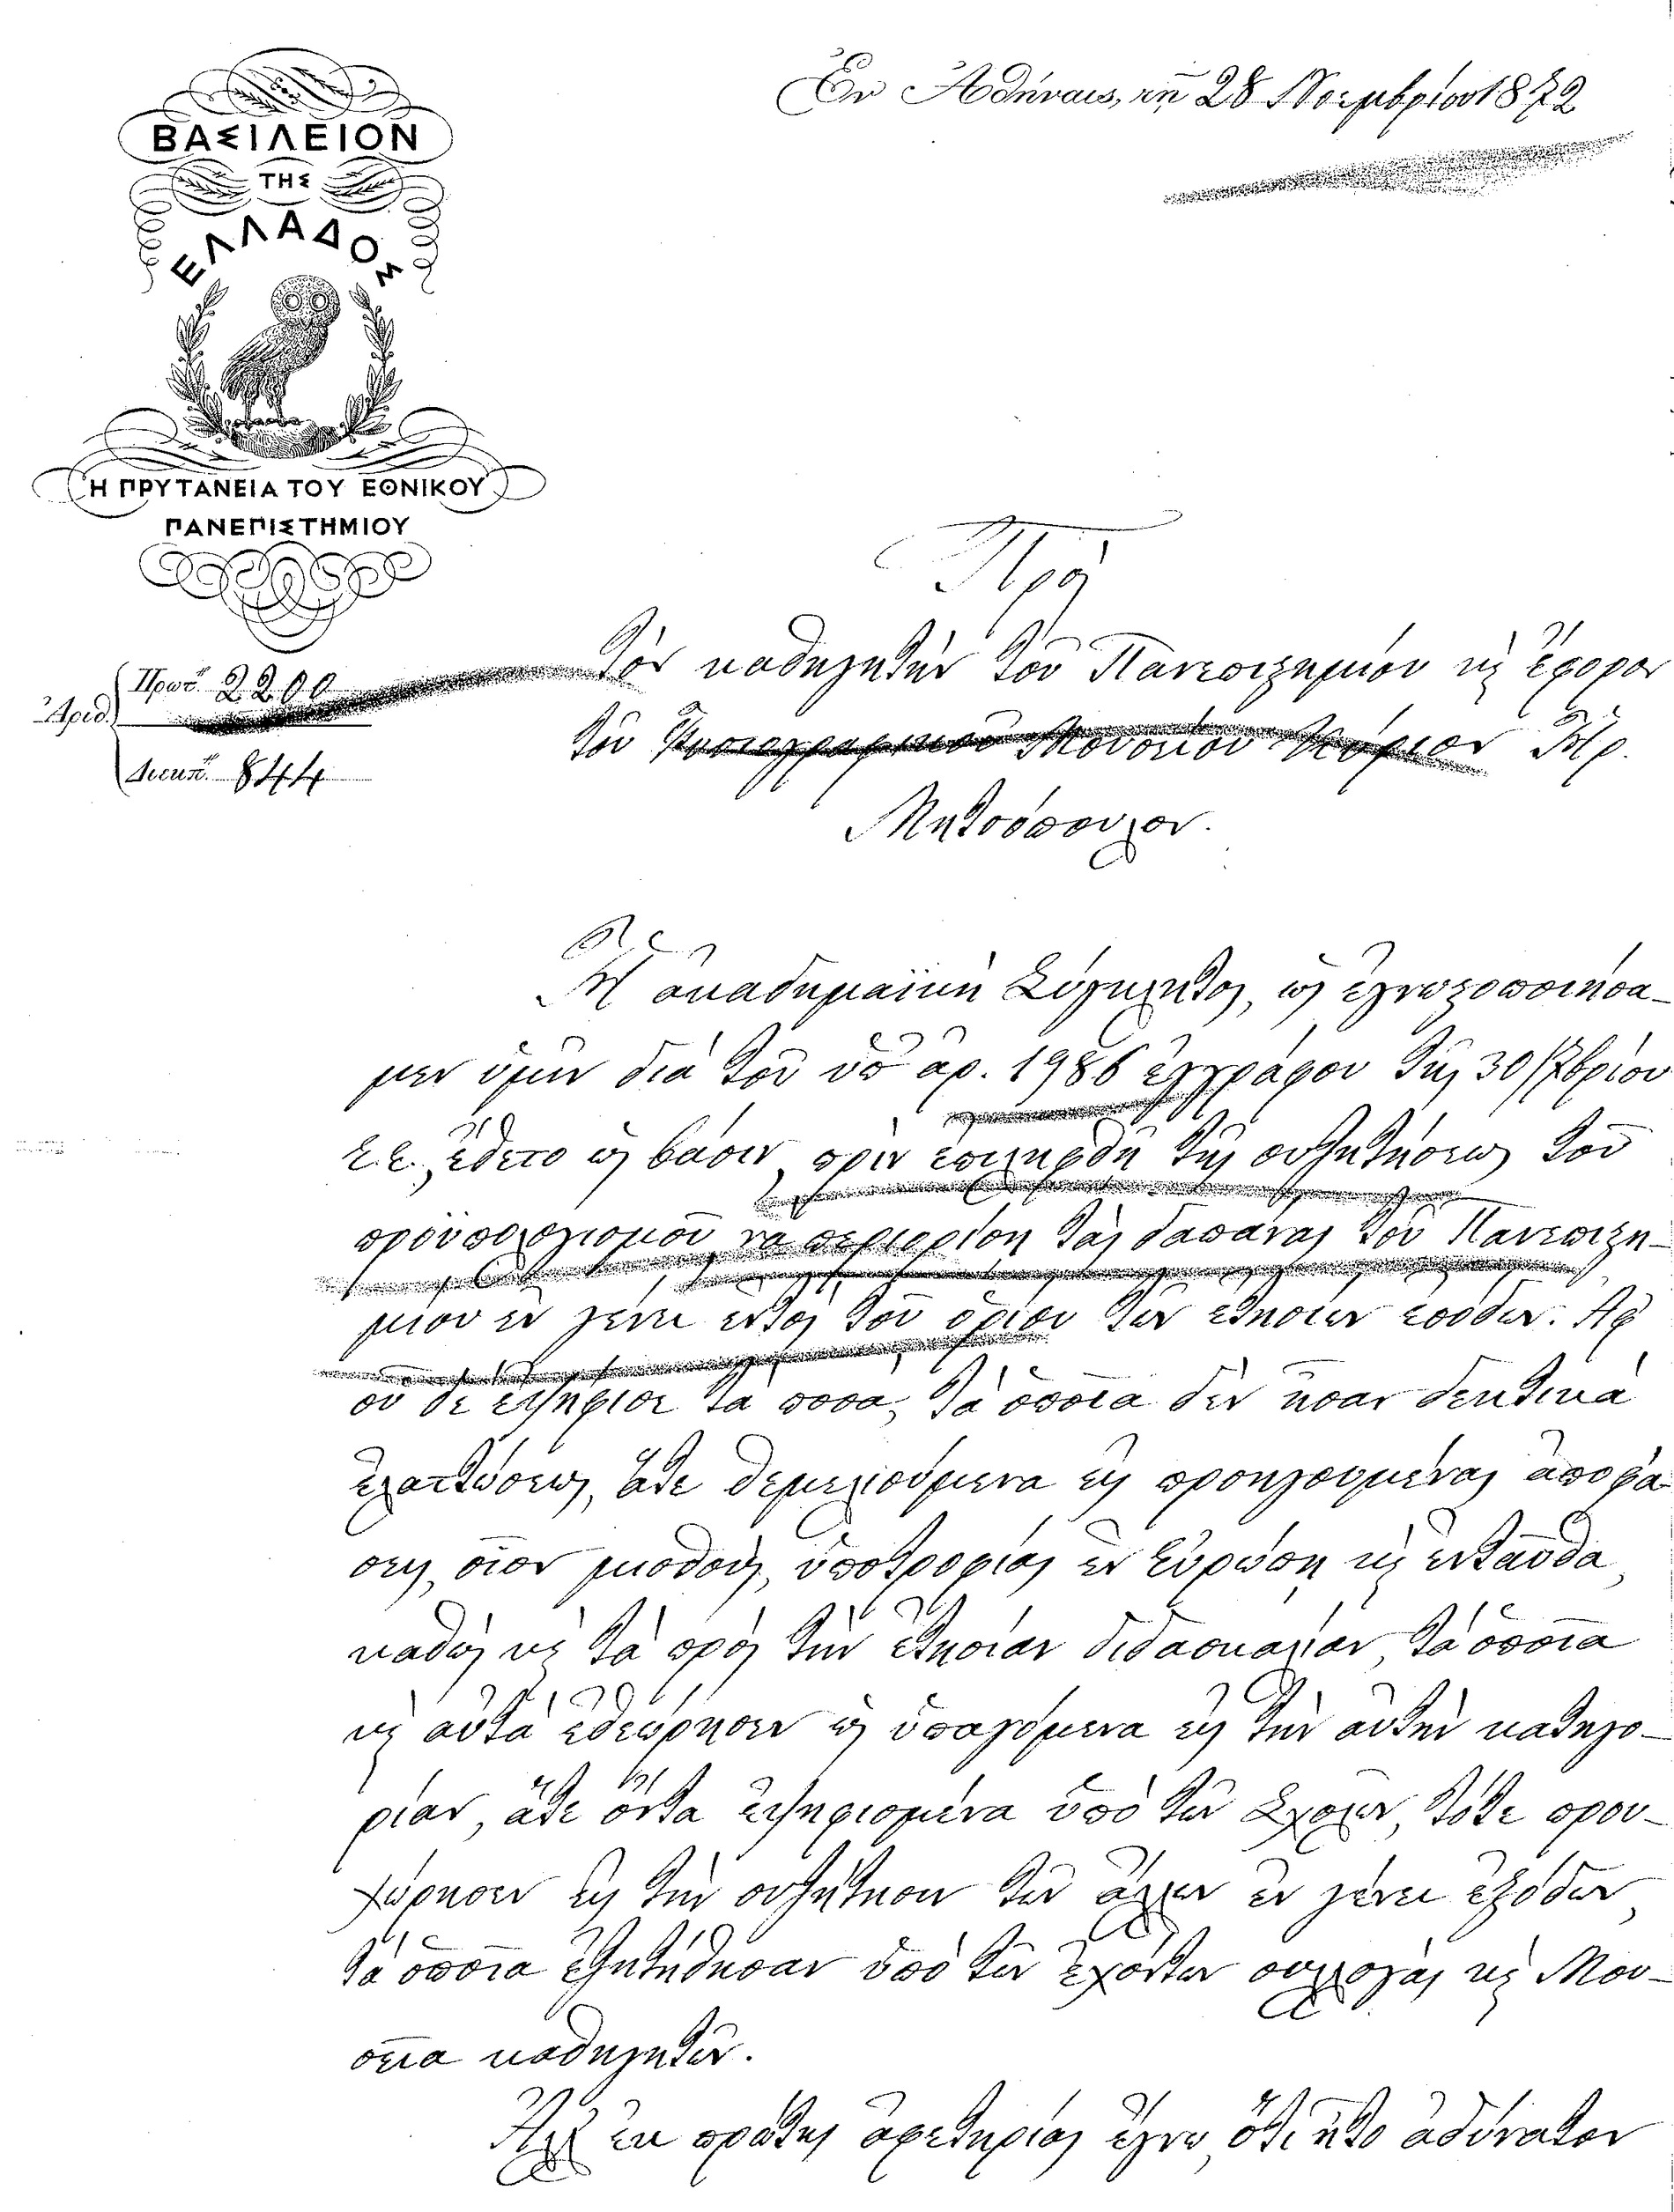 Ἐν Ἀθήναις, τῇ 28 Νοεμβρίου 1872
ΒΑΣΙΛΕΙΟΝ
ΤΗΣ
ΕΛΛΑΔΟΣ
Η ΠΡΥΤΑΝΕΙΑ ΤΟΥ ΕΘΝΙΚΟΥ
ΠΑΝΕΠΙΣΤΗΜΙΟΥ
Ἀριθ.
Πρωτ. 2200
Διεκπ. 844
Πρὸς
τὸν καθηγητὴν τοῦ Πανεπιστημίου καὶ ἔφορον
τοῦ Φυσιογραφικοῦ Μουσείου Κύριον Ἡρ.
Μητσόπουλον.
Ἡ ἀκαδημαϊκὴ Σύγκλητος, ὡς ἐγνωστοποιήσα-
μεν ὑμῖν διὰ τοῦ ὑπ' ἀρ. 1986 ἐγγράφου τῆς 30 7βρίου
ἔ.ἔ., ἔθετο ὡς βάσιν, πρὶν ἐπιληφθῇ τῆς συζητήσεως τοῦ
προϋπολογισμοῦ, νὰ περιορίσῃ τὰς δαπάνας τοῦ Πανεπιστη-
μίου ἐν γένει ἐντὸς τοῦ ὁρίου τῶν ἐτησίων ἐσόδων. Ἀφ'
οὗ δὲ ἐψήφισε τὰ ποσά, τὰ ὁποῖα δὲν ἦσαν δεκτικὰ
ἐλαττώσεως, ἅτε θεμελιούμενα εἰς προηγουμένας ἀποφά-
σεις, οἷον μισθούς, ὑποτροφίας ἐν Εὐρώπῃ καὶ ἐνταῦθα,
καθὼς καὶ τὰ πρὸς τὴν ἐτησίαν διδασκαλίαν, τὰ ὁποῖα
καὶ αὐτὰ ἐθεώρησεν ὡς ὑπαγόμενα εἰς τὴν αὐτὴν κατηγο-
ρίαν, ἅτε ὄντα ἐψηφισμένα ὑπὸ τῶν Σχολῶν, τότε πρου-
χώρησεν εἰς τὴν συζήτησιν τῶν ἄλλων ἐν γένει ἐξόδων,
τὰ ὁποῖα ἐζητήθησαν ὑπὸ τῶν ἐχόντων συλλογὰς καὶ Μου-
σεῖα καθηγητῶν.
Ἀλλ' ἐκ πρώτης ἀφετηρίας ἔγνω, ὅτι ἦτο ἀδύνατον